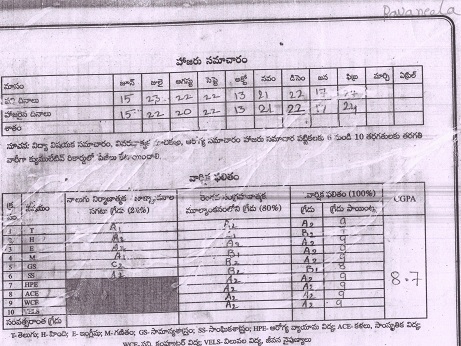 Davaneela
హాజరు సమాచారం
మాసం జూన్ జులై ఆగస్టు సెప్టె అక్టో నవం డిసెం జన ఫిబ్ర మార్చి ఏప్రిల్
పని దినాలు 15 23 22 22 13 21 22 17
హాజరైన దినాలు 15 22 20 22 13 21 22 24
శాతం
సూచన: విద్యా విషయక సమాచారం, ఆరోగ్య సమాచారం హాజరు సమాచార పట్టికలకు 6 నుండి 10 తరగతులకు తరగతి
వారీగా క్యుములేటివ్ రికార్డులో పేజీలు
వార్షిక ఫలితం
క్ర సం. విషయం నాలుగు నిర్మాణాత్మక సగటు గ్రేడు (20%) మూల్యాంకనంలోని గ్రేడు (80%) వార్షిక ఫలితం (100%) UGPA
గ్రేడు గ్రేడు పాయింట్లు
1 T A1 A2 A2 9
2 H A2
3 E A2 A2 A2 9
4 M A1 B1 A2 9
5 GS C2 B1 B1 8
6 SS A2 A2 A2 9
7 HPE A2 A2 9
8 ACE A2 A2 9 8.7
9 WCE A2 A2 9
10 VELS A2 A2 9
సంవత్సరాంత గ్రేడు
T- తెలుగు; H-హింది; E- ఇంగ్లీషు; M-గణితం; GS- సామాన్యశాస్త్రం; SS- సాంఘికశాస్త్రం; HPE- ఆరోగ్య వ్యాయామ విద్య ACE- కళలు, సాంస్కృతిక విద్య
WCE- పని, కంప్యూటర్ విద్య VELS- విలువల విద్య, జీవన నైపుణ్యాలు